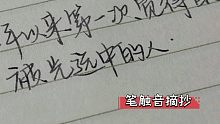 年以来第一次觉得
被光选中的人.
笔触音摘抄